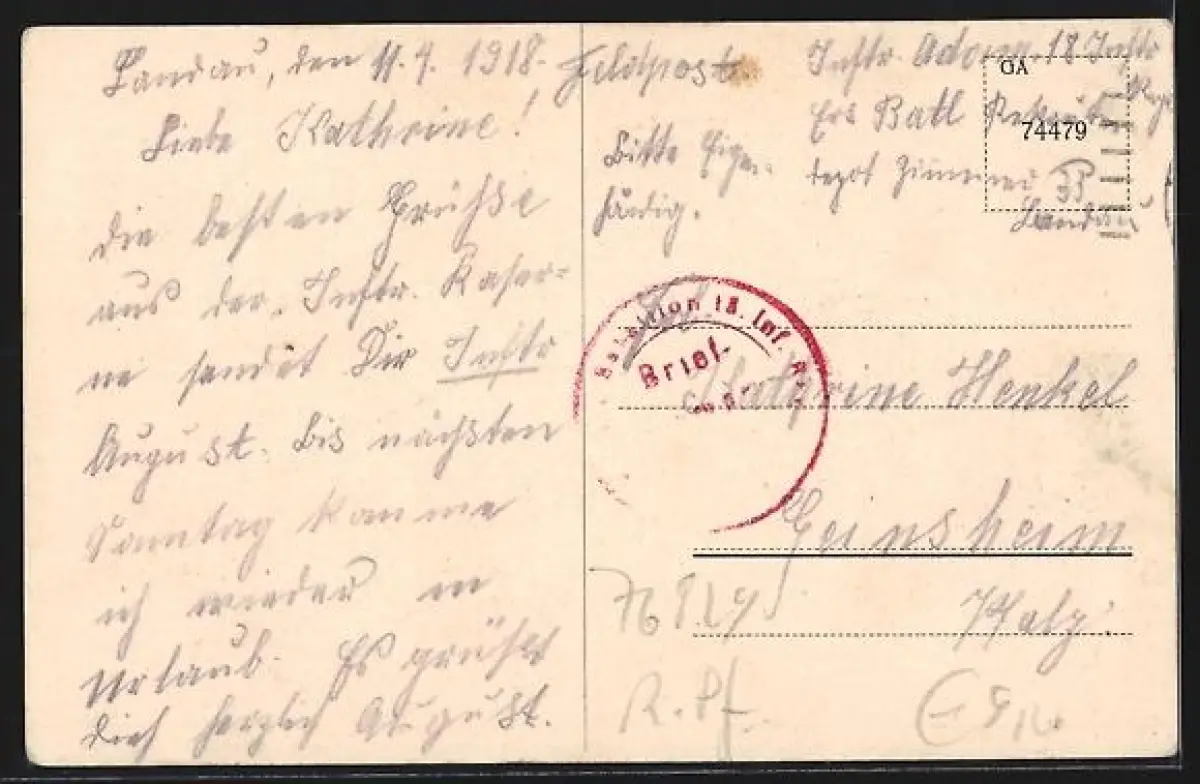 Landau, den 11.4. 1918.
Liebe Kathrine!
die besten Grüße
aus der Inftr. Kaser=
ne sendet Dir Inftr
August. Bis nächsten
Sonntag komme
ich wieder in
Urlaub. Es grüßt
dich herzlich August.
Feldpost
Inftr. Adam 18. Inftr
Regt
Ers Batl Rekruten
depot Zimmer
Landau
Bitte Eigen-
händig.
GA
74479
Bataillon 18. Inf. R.
Brief-
Kathrine Henkel
Geinsheim
Pfalz.
R. Pf.